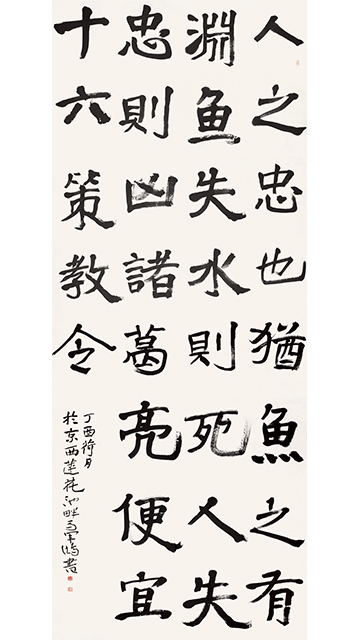 人之忠也猶魚之有
淵鱼失水則死人失
忠則凶諸葛亮便宜
十六策教令
丁酉荷月
於京西蓮花池畔書